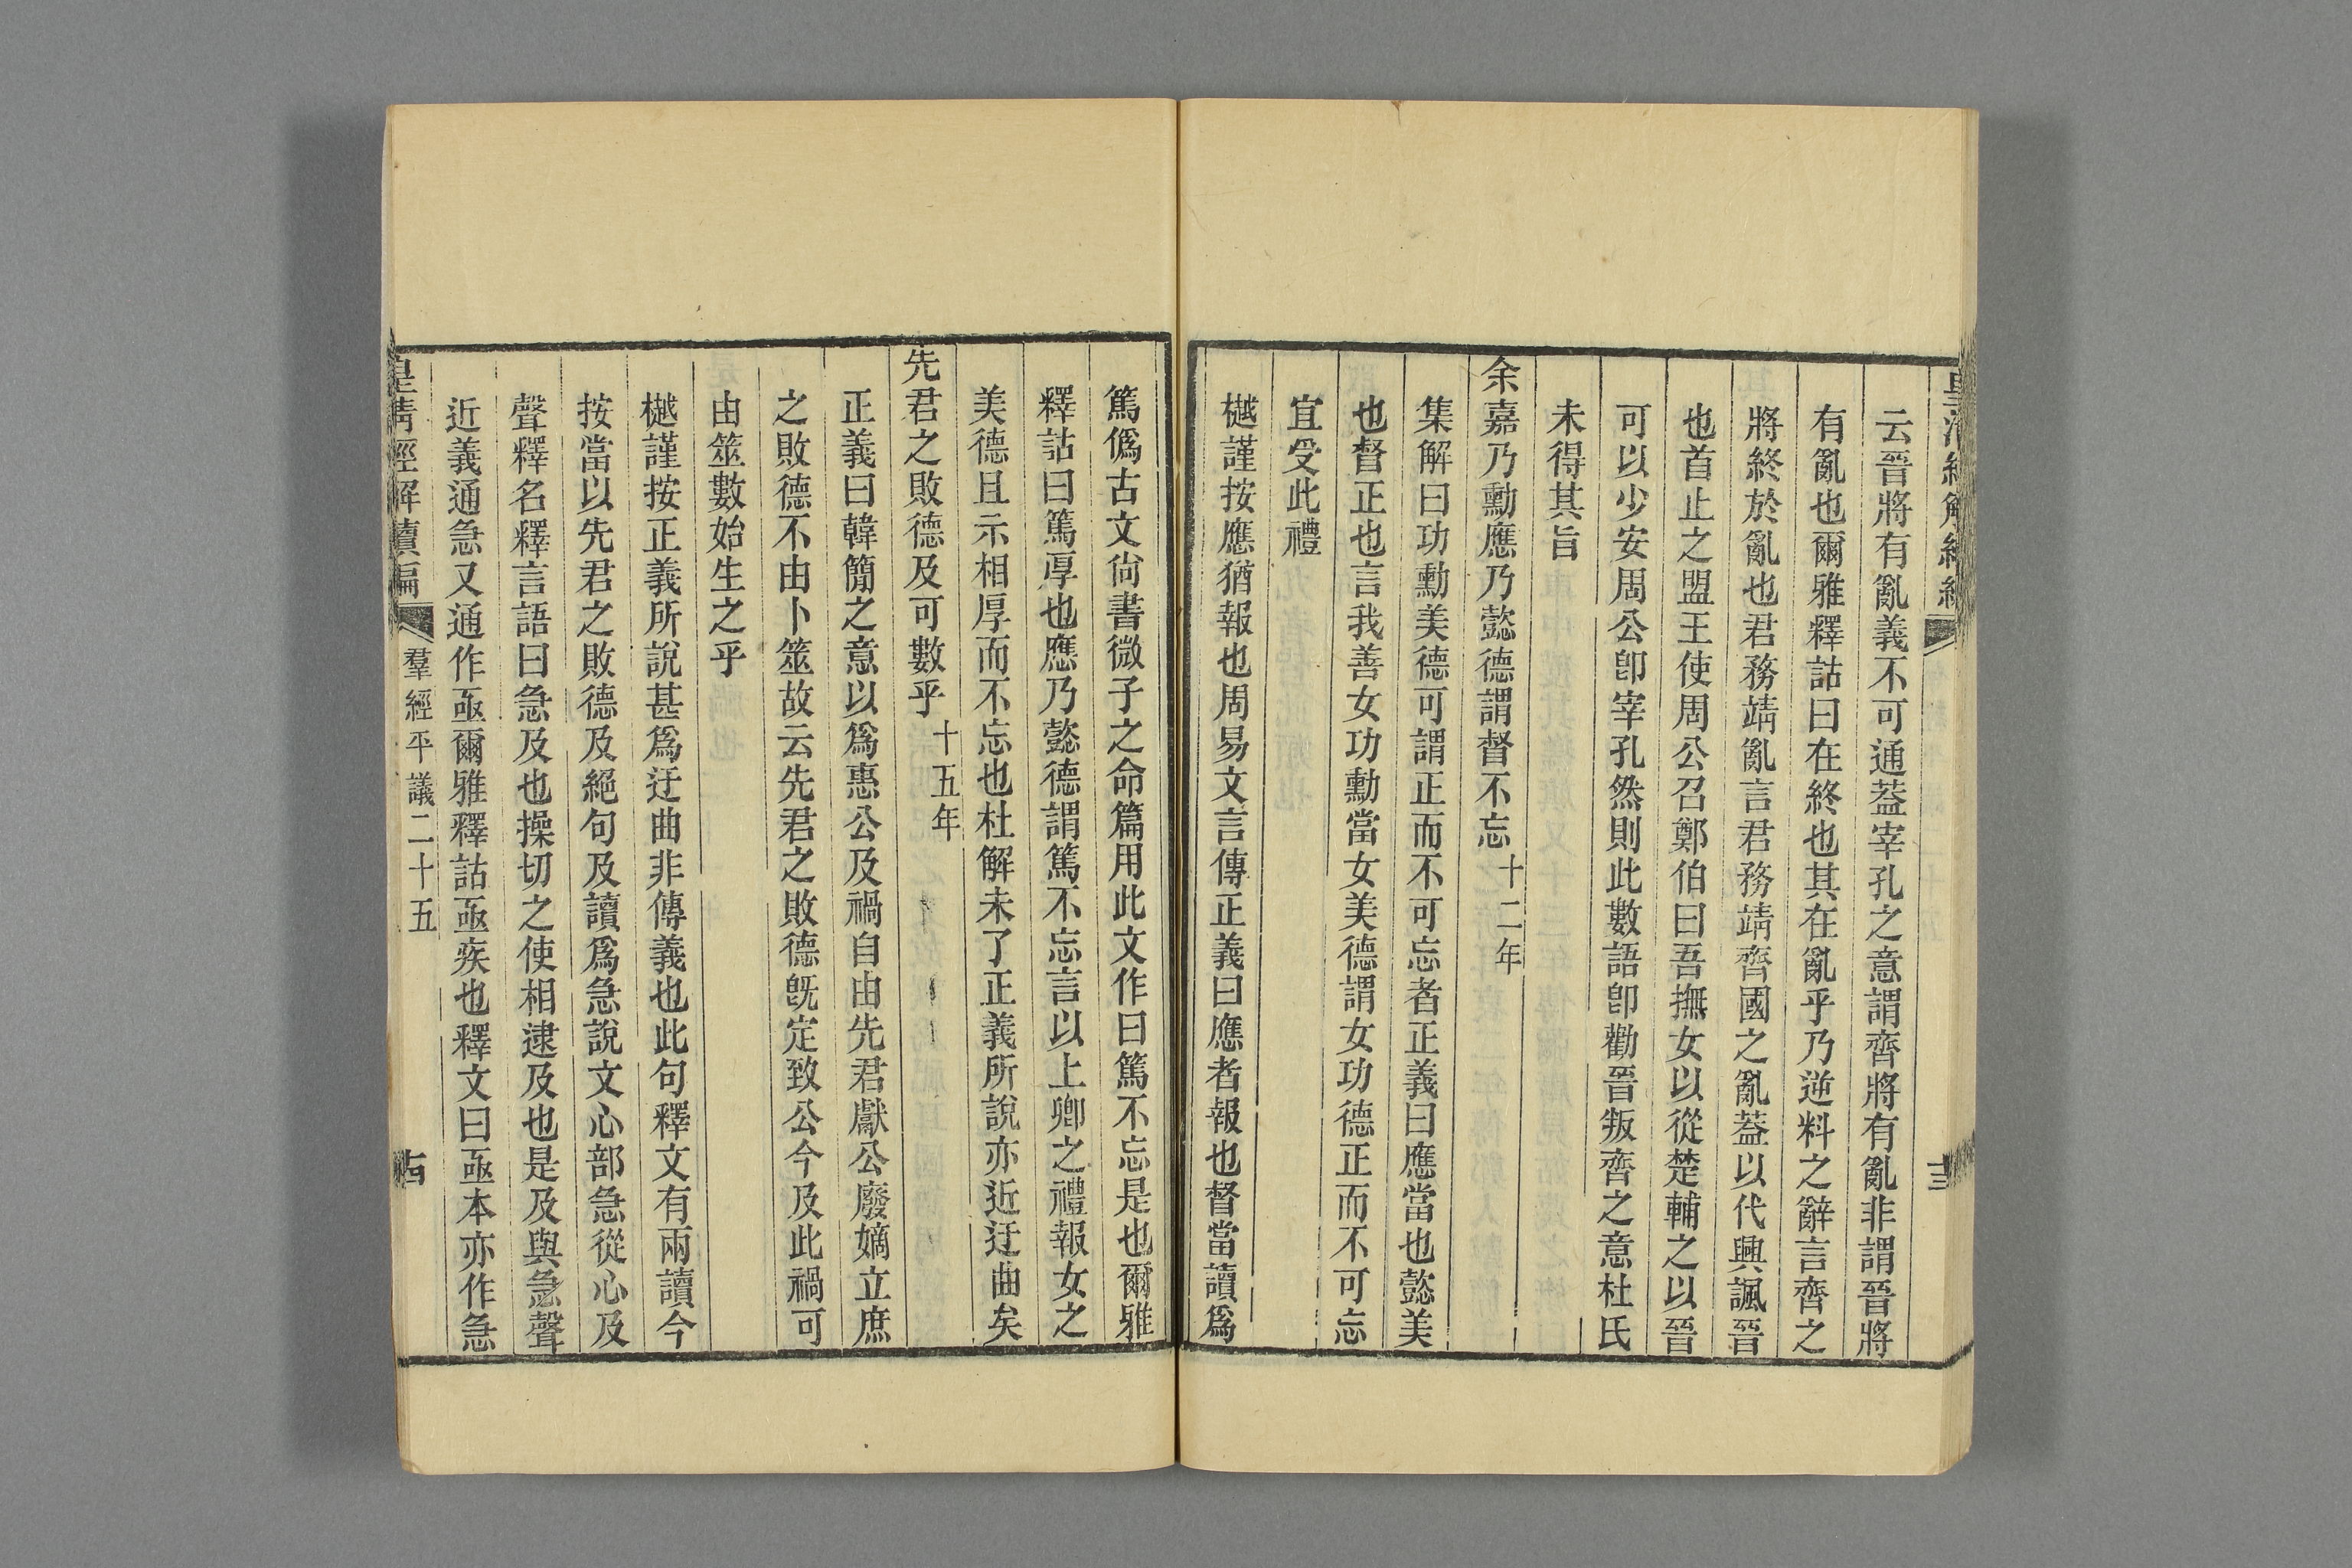 云晉將有亂義不可通葢宰孔之意謂齊將有亂非謂晉將
有亂也爾雅釋詁曰在終也其在亂乎乃逆料之辭言齊之
將終於亂也君務靖亂言君務靖齊國之亂葢以代興諷晉
也首止之盟王使周公召鄭伯曰吾撫女以從楚輔之以晉
可以少安周公卽宰孔然則此數語卽勸晉叛齊之意杜氏
未得其旨
余嘉乃勳應乃懿德謂督不忘 十二年
集解曰功勳美德可謂正而不可忘者正義曰應當也懿美
也督正也言我善女功勳當女美德謂女功德正而不可忘
宜受此禮
樾謹按應猶報也周易文言傳正義曰應者報也督當讀爲
篤僞古文尙書微子之命篇用此文作曰篤不忘是也爾雅
釋詁曰篤厚也應乃懿德謂篤不忘言以上卿之禮報女之
美德且示相厚而不忘也杜解未了正義所說亦近迂曲矣
先君之敗德及可數乎 十五年
正義曰韓簡之意以爲惠公及禍自由先君獻公廢嫡立庶
之敗德不由卜筮故云先君之敗德旣定致公今及此禍可
由筮數始生之乎
樾謹按正義所說甚爲迂曲非傳義也此句釋文有兩讀今
按當以先君之敗德及絕句及讀爲急說文心部急從心及
聲釋名釋言語曰急及也操切之使相逮及也是及與急聲
近義通急又通作亟爾雅釋詁亟疾也釋文曰亟本亦作急
皇淸經解續編 羣經平議二十五